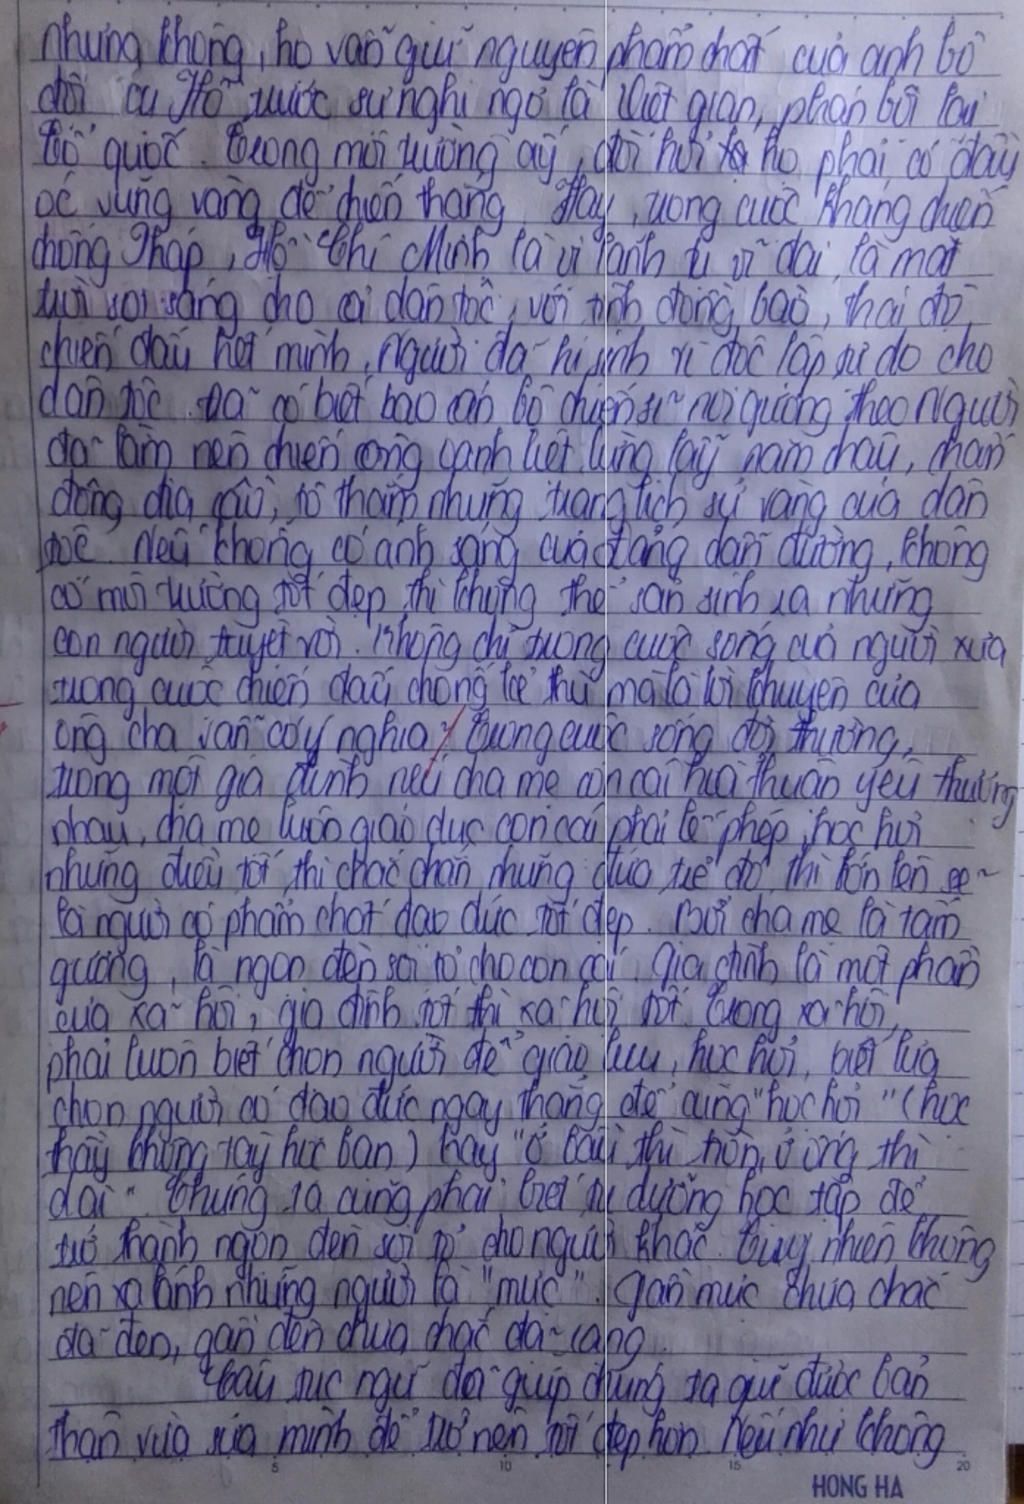 nhưng không, họ vẫn giữ nguyên phẩm chất của anh bộ
đội cụ Hồ trước sự nghi ngờ là Việt gian, phản bội lại
tổ quốc. Trong môi trường ấy, đòi hỏi họ phải có đầu
óc vững vàng để chiến thắng. Hay, trong cuộc kháng chiến
chống Pháp, Hồ Chí Minh là vị lãnh tụ vĩ đại, là mặt
trời soi sáng cho cả dân tộc, với tình đồng bào, thái độ
chiến đấu hết mình, Người đã hi sinh vì độc lập tự do cho
dân tộc. Đã có biết bao cán bộ chiến sĩ noi gương theo Người
đã làm nên chiến công oanh liệt, lừng lẫy năm châu, chấn
động địa cầu, tô thắm những trang lịch sử vàng của dân
tộc. Nếu không có ánh sáng của Đảng dẫn đường, không
có môi trường tốt đẹp thì không thể sản sinh ra những
con người tuyệt vời. Không chỉ trong cuộc sống của người xưa
trong cuộc chiến đấu chống kẻ thù mà là lời khuyên của
ông cha vẫn có ý nghĩa trong cuộc sống đời thường,
trong một gia đình nếu cha mẹ con cái hoà thuận yêu thương
nhau, cha mẹ luôn giáo dục con cái phải lễ phép, học hỏi
những điều tốt thì chắc chắn những đứa trẻ đó thì lớn lên sẽ
là người có phẩm chất đạo đức tốt đẹp. Bởi cha mẹ là tấm
gương, là ngọn đèn soi tỏ cho con cái. Gia đình là một phần
của xã hội, gia đình tốt thì xã hội tốt. Trong xã hội,
phải luôn biết chọn người để giao lưu, học hỏi, biết lựa
chọn người có đạo đức ngay thẳng để cùng "học hỏi" (học
thầy không tày học bạn) hay "ở bầu thì tròn, ở ống thì
dài". Chúng ta cũng phải biết tu dưỡng học tập để
trở thành ngọn đèn soi tỏ cho người khác. Tuy nhiên không
nên xa lánh những người là "mực". Gần mực chưa chắc
đã đen, gần đèn chưa chắc đã rạng.
Câu tục ngữ đã giúp chúng ta giữ được bản
thân vừa sửa mình để trở nên tốt đẹp hơn. Nếu như không
5 10 15 20
HONG HA